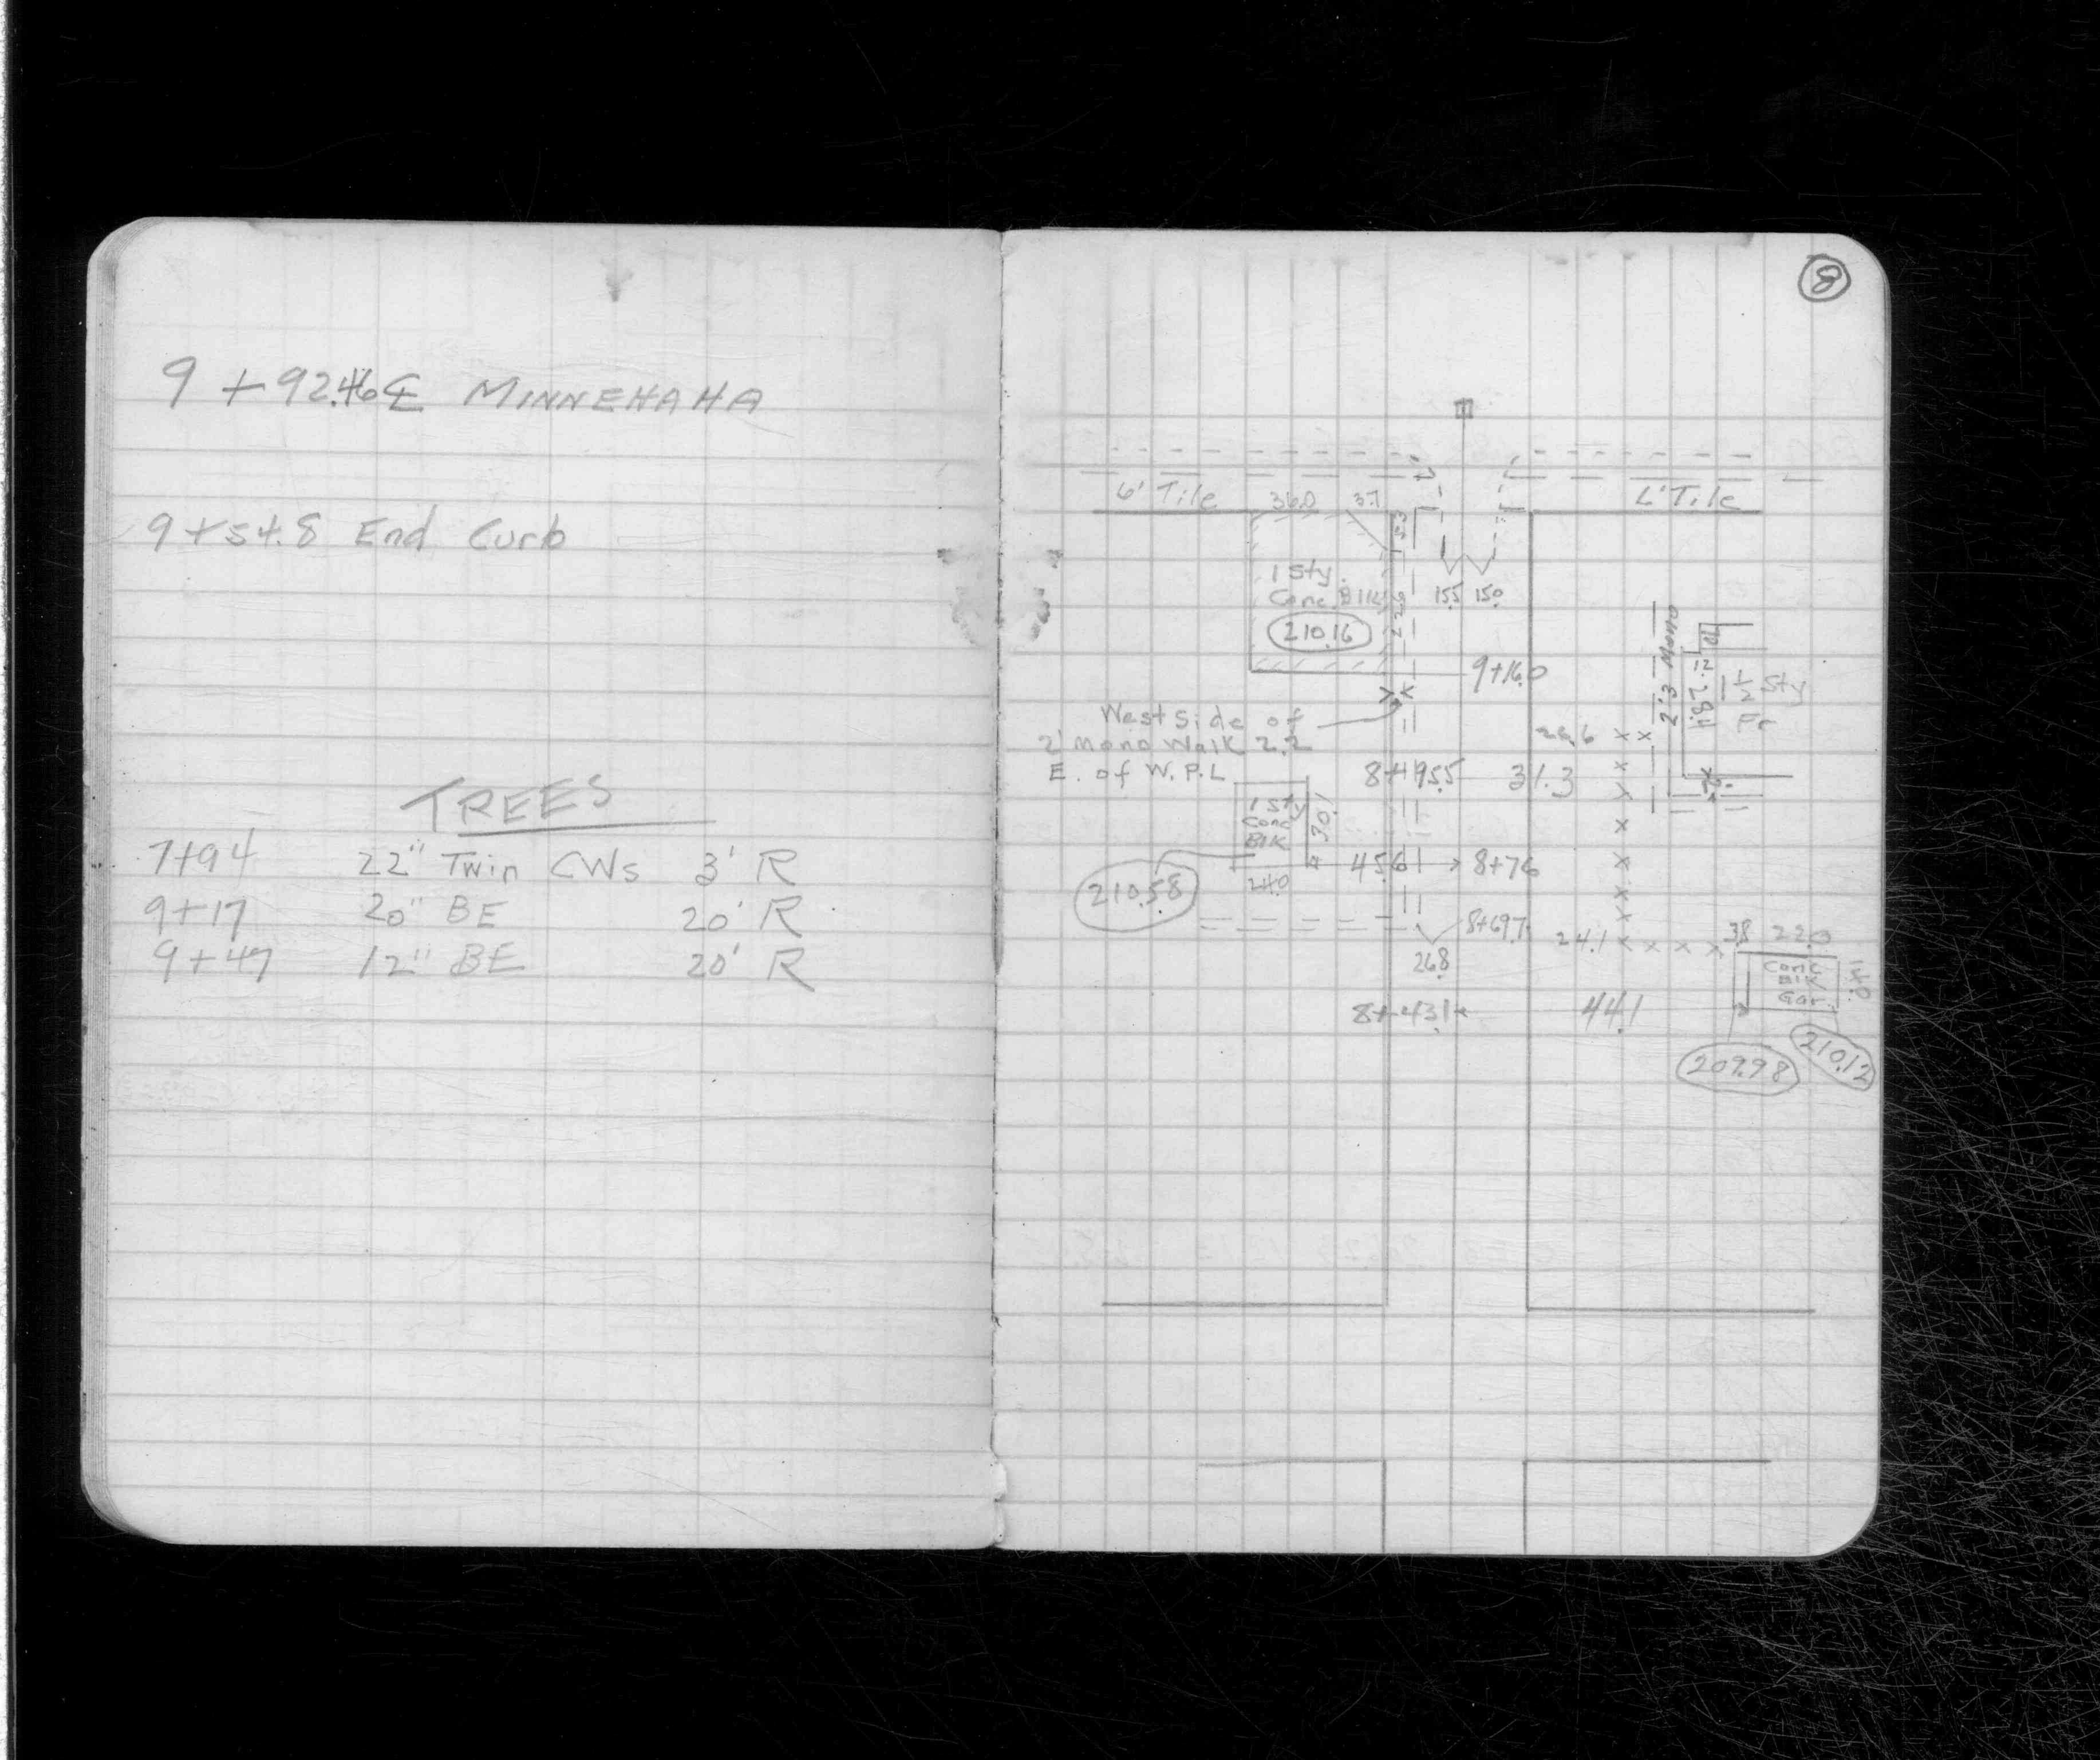 9 + 92.46 ℄ MINNEHAHA
9 + 54.8 End Curb
TREES
7+94 22" Twin CWs 3' R
9+17 20" BE 20' R
9+47 12" BE 20' R
8
6' Tile 36.0 3.7 L' Tile
5.3
1 Sty.
Conc. Blk
210.16
15.5 15.0
9+16.0
2'3 Mono
12
Sty
Fr
West Side of
2' Mono Walk 2.2
E. of W.P.L
8+95.5 31.3
1 Sty
Conc
Blk
30.1
45.6 8+76
24.0
210.58
8+69.7
26.8
24.1
3.8 22.0
Conc
Blk
Gar.
14.0
8+43.1 44.1
209.98
210.12